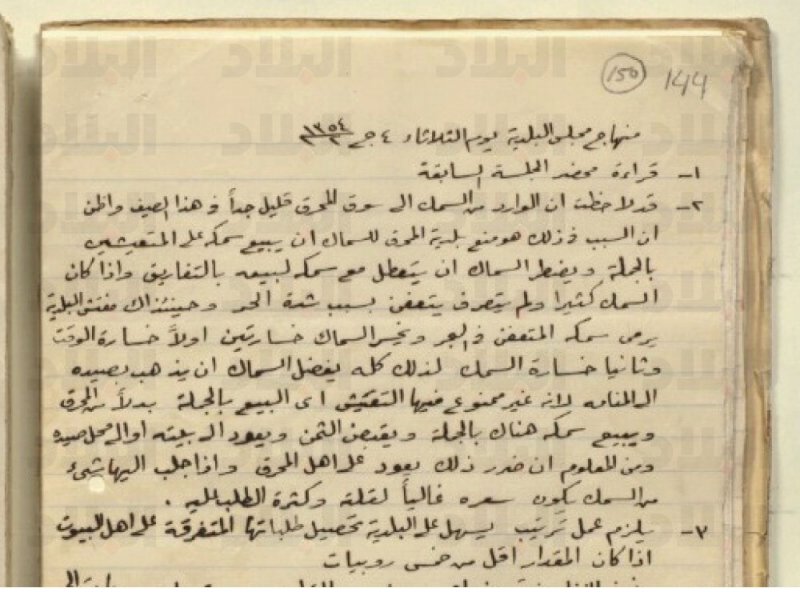 150 144
منهاج مجلس البلدية يوم الثلاثاء ٤ ج ٢ ١٣٥٤
١- قراءة محضر الجلسة السابقة
٢- قد لاحظت ان الوارد من السمك الى سوق المحرق قليل جداً في هذا الصيف واظن
ان السبب في ذلك هو منع بلدية المحرق للسماك ان يبيع سمكه على المتعيشين
بالجملة ويضطر السماك ان يتعطل مع سمكه لبيعه بالتفاريق واذا كان
السمك كثيرا ولم يتصرف يتعفن بسبب شدة الحر وحينئذاك مفتش البلدية
يرمى سمكه المتعفن في البحر ويخسر السماك خسارتين اولاً خسارة الوقت
وثانيا خسارة السمك لذلك كله يفضل السماك ان يذهب بصيده
الى المنامه لانه غير ممنوع فيها التعيّش اى البيع بالجملة بدلاً من المحرق
ويبيع سمكه هناك بالجملة ويقبض الثمن ويعود الى بيته او الى محل صيده
ومن المعلوم ان ضرر ذلك يعود على اهل المحرق واذا جلب اليها شئ
من السمك يكون سعره غالياً لقلته وكثرة الطلب اليه .
٣- يلزم عمل ترتيب يسهل على البلدية تحصيل طلباتها المتفرقة على اهل البيوت
اذا كان المقدار اقل من خمس روبيات
البلاد